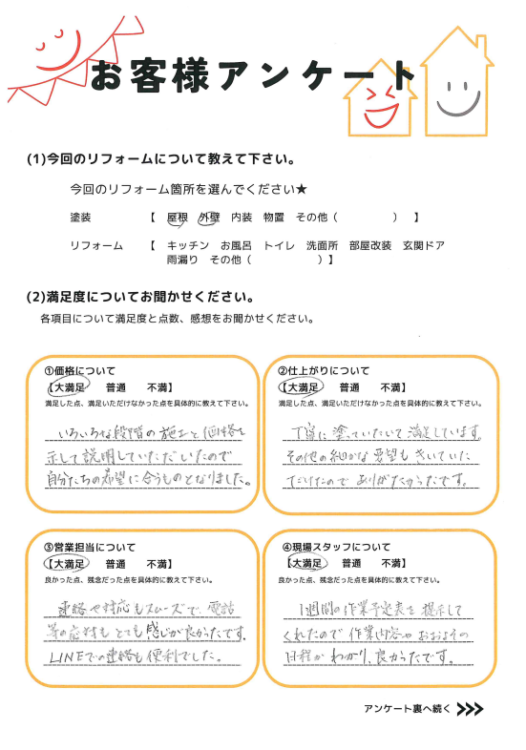 お客様アンケート
(1)今回のリフォームについて教えて下さい。
今回のリフォーム箇所を選んでください★
塗装 【 屋根 外壁 内装 物置 その他（ ） 】
リフォーム 【 キッチン お風呂 トイレ 洗面所 部屋改装 玄関ドア
雨漏り その他（ ）】
(2)満足度についてお聞かせください。
各項目について満足度と点数、感想をお聞かせください。
①価格について
【大満足 普通 不満】
満足した点、満足いただけなかった点を具体的に教えて下さい。
いろいろな段階の施工と価格を
示して説明していただいたので
自分たちの希望に合うものとなりました。
②仕上がりについて
【大満足 普通 不満】
満足した点、満足いただけなかった点を具体的に教えて下さい。
丁寧に塗っていただいて満足しています。
その他の細かな要望もきいていた
だけたのでありがたかったです。
③営業担当について
【大満足 普通 不満】
良かった点、残念だった点を具体的に教えて下さい。
連絡や対応もスムーズで、電話
等の応対もとても感じが良かったです。
LINEでの連絡も便利でした。
④現場スタッフについて
【大満足 普通 不満】
良かった点、残念だった点を具体的に教えて下さい。
1週間の作業予定表を提示して
くれたので作業内容やおおよその
日程がわかり、良かったです。
アンケート裏へ続く